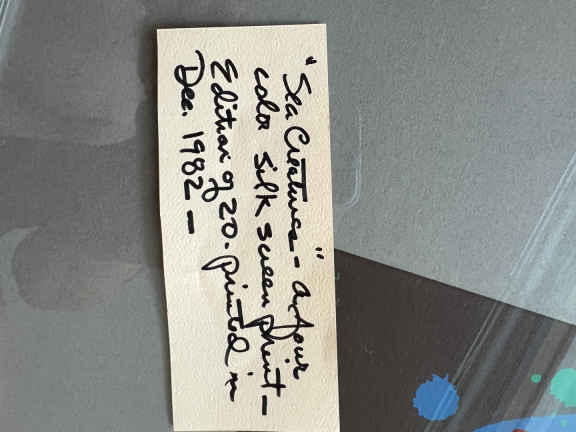 "Sea Creatures" - a four
color silk screen print -
Edition of 20. printed in
Dec. 1982 -